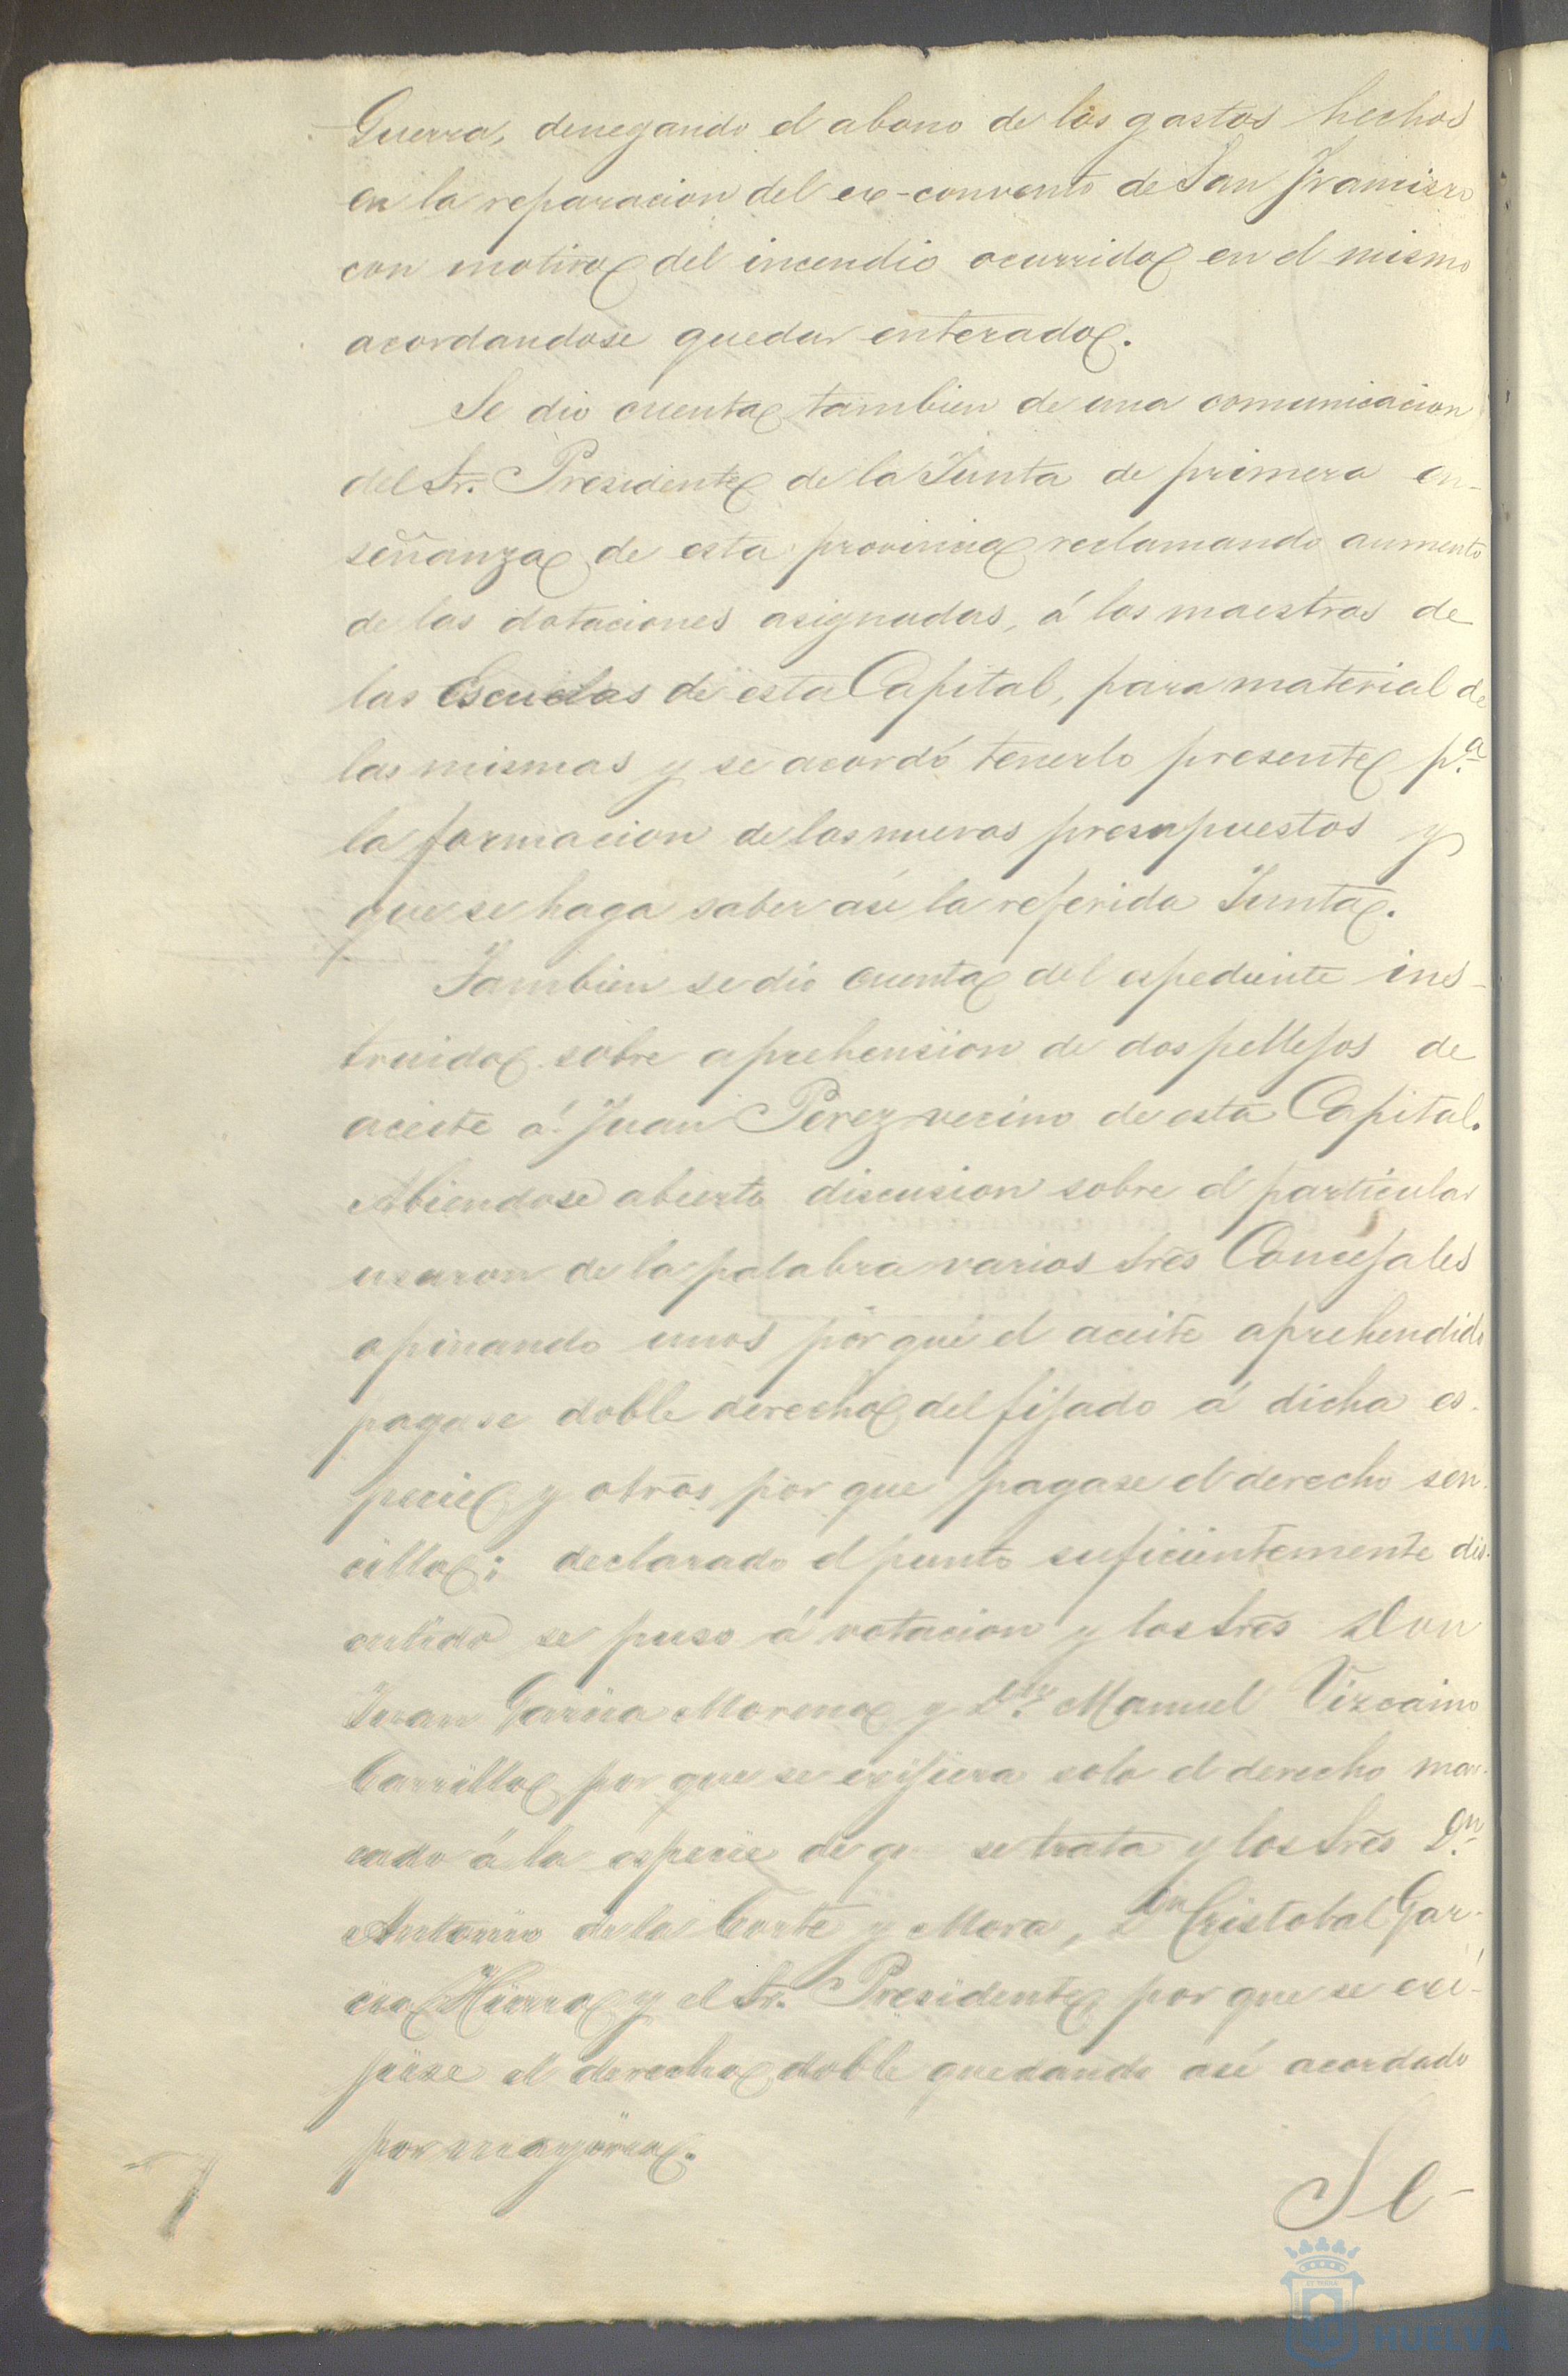 Guerra, denegando el abono de los gastos hechos
en la reparacion del ex-convento de San Francisco
con motivo del incendio ocurrido en el mismo
acordandose quedar enterado.
Se dio cuenta tambien de una comunicacion
del Sr. Presidente de la Junta de primera en-
señanza de esta provincia reclamando aumento
de las dotaciones asignadas, á los maestros de
las Escuelas de esta Capital, para material de
las mismas y se acordó tenerlo presente p.ª
la formacion de los nuevos presupuestos y
que se haga saber asi la referida Junta.
Tambien se dio cuenta del espediente ins-
truido sobre aprehension de dos pellejos de
aceite á Juan Perez vecino de esta Capital.
Abiendose abierto discusion sobre el particular
usaron de la palabra varios Sres Concejales
opinando unos por que el aceite aprehendido
pagase doble derecho del fijado á dicha es-
pecie y otros por que pagase el derecho sen-
cillo; declarado el punto suficientemente dis-
cutido se puso á votacion y los Sres Don
Juan Garcia Moreno y D.n Manuel Vizcaino
Carrillo por que se exijiera solo el derecho mar-
cado á la especie de q. se trata y los Sres D.n
Antonio de la Corte y Mora, D.n Cristobal Gar-
cia Hierro y el Sr. Presidente, por que se exi-
jiese el derecho doble quedando asi acordado
por mayoria.
Se-
7
HUELVA